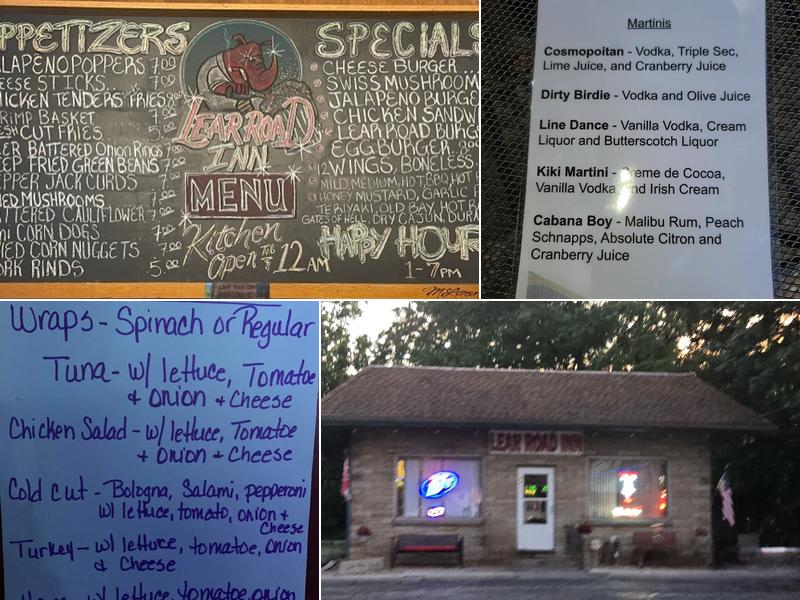 PPETIZERS
ALAPENO POPPERS 7.00
EESE STICKS 7.00
ICKEN TENDERS FRIES
RIMP BASKET
CUT FRIES 5.00
ER BATTERED Onion Rings
EP FRIED GREEN BEANS
PER JACK CURDS
ED MUSHROOMS
TTERED CAULIFLOWER 7.00
NI CORN DOGS 7.00
IED CORN NUGGETS 7.00
ORK RINDS 5.00
LEAR ROAD
INN
MENU
Kitchen
OPEN TIL 12 AM
SPECIALS
CHEESE BURGER
SWISS MUSHROOM
JALAPENO BURGE
CHICKEN SANDW
LEAR ROAD BURG
EGG BURGER
12 WINGS, BONELESS
MILD, MEDIUM, HOT, BBQ HOT
HONEY MUSTARD, GARLIC
TERIYAKI, OLD BAY, HOT
GATES OF HELL, DRY CAJUN,
HAPPY HOUR
1-7PM
Martinis
Cosmopoitan - Vodka, Triple Sec,
Lime Juice, and Cranberry Juice
Dirty Birdie - Vodka and Olive Juice
Line Dance - Vanilla Vodka, Cream
Liquor and Butterscotch Liquor
Kiki Martini - Creme de Cocoa,
Vanilla Vodka, and Irish Cream
Cabana Boy - Malibu Rum, Peach
Schnapps, Absolute Citron and
Cranberry Juice
Wraps - Spinach or Regular
Tuna - w/ lettuce, Tomatoe
& Onion & Cheese
Chicken Salad - w/ lettuce, Tomatoe
& Onion & Cheese
Cold Cut - Bologna, Salami, pepperoni
w/ lettuce, tomato, onion &
Cheese
Turkey - w/ lettuce, tomatoe, Onion
& Cheese
w/ lettuce, tomatoe, onion
LEAR ROAD INN